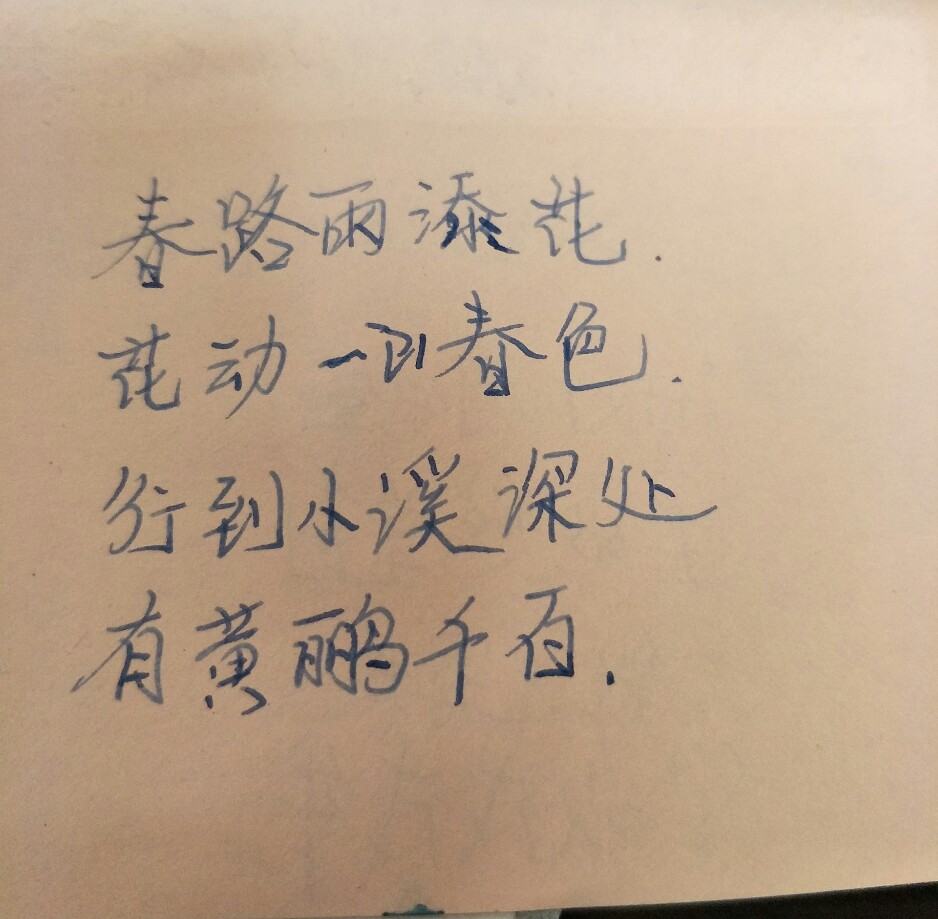 春路雨添花.
花动一山春色.
行到小溪深处
有黄鹂千百.